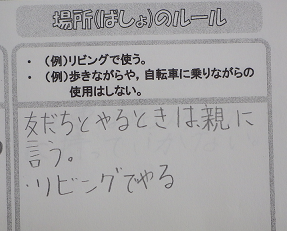 場所(ばしょ)のルール
・ (例)リビングで使う。
・ (例)歩きながらや，自転車に乗りながらの
使用はしない。
友だちとやるときは、親に
言う。
・リビングでやる